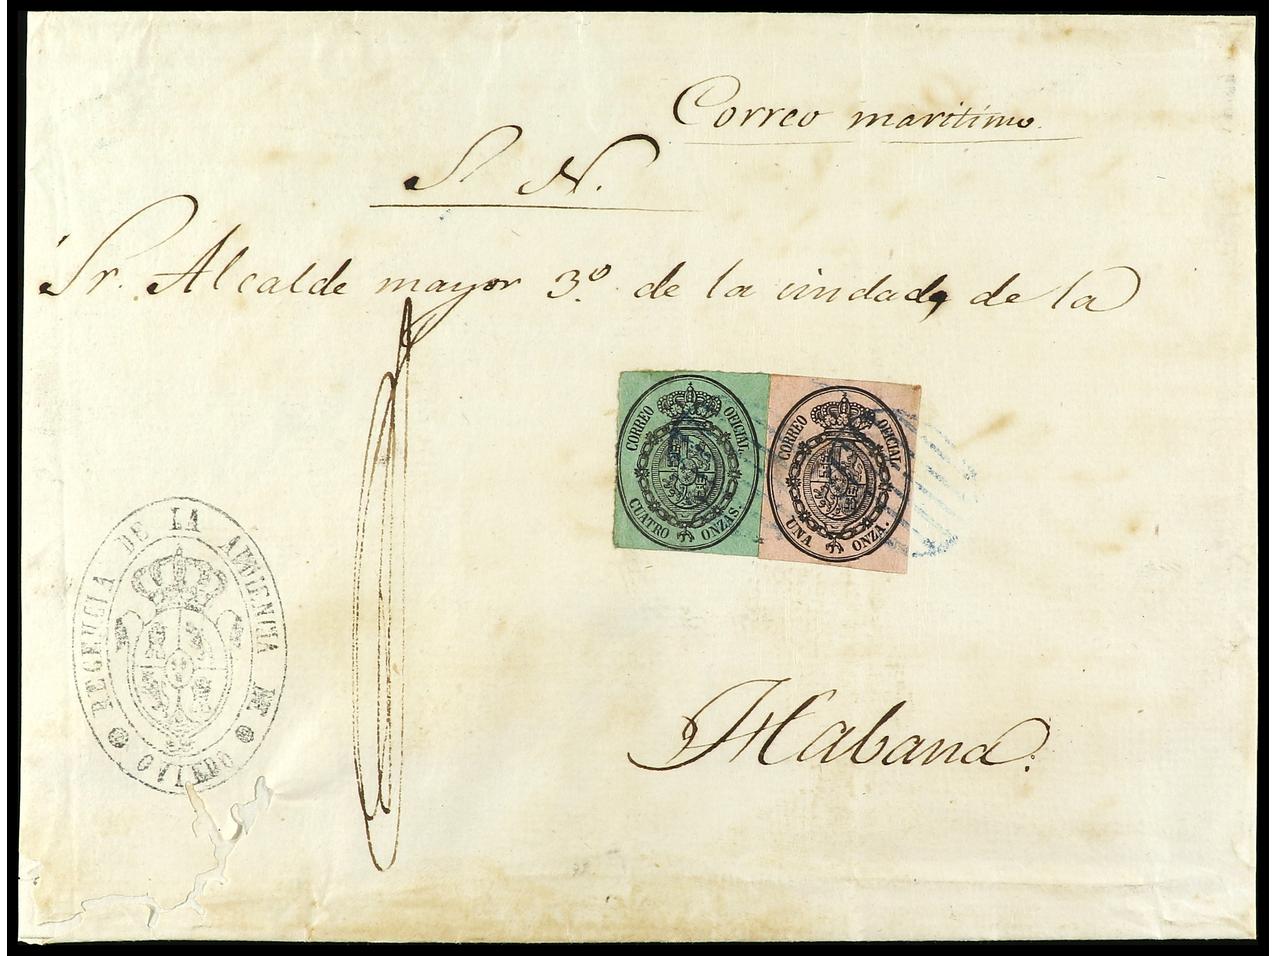 Correo maritimo
S. N.
Sr. Alcalde mayor 3º de la ciudad, de la
CORREO OFICIAL
CUATRO ONZAS.
CORREO OFICIAL
UNA ONZA.
REGENCIA DE LA AUDIENCIA
OVIEDO
Habana.